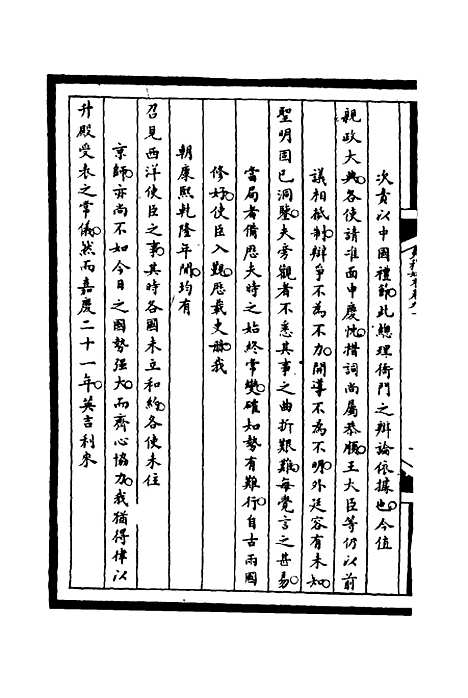 次責以中國禮節此總理衙門之辯論依據也今值
親政大典各使請准面申慶忱措詞尚屬恭順王大臣等仍以前
議相抵制辯爭不為不力開導不為不明外廷容有未知
聖明固已洞鑒夫旁觀者不悉其事之曲折艱難每覺言之甚易
當局者備歷夫時之始終常變確知勢有難行自古兩國
修好使臣入覲歷載史冊我
朝康熙乾隆年間均有
召見西洋使臣之事其時各國未立和約各使未住
京師亦尚不如今日之國勢强大而齊心協力我猶得律以
升殿受表之常儀然而嘉慶二十一年英吉利來